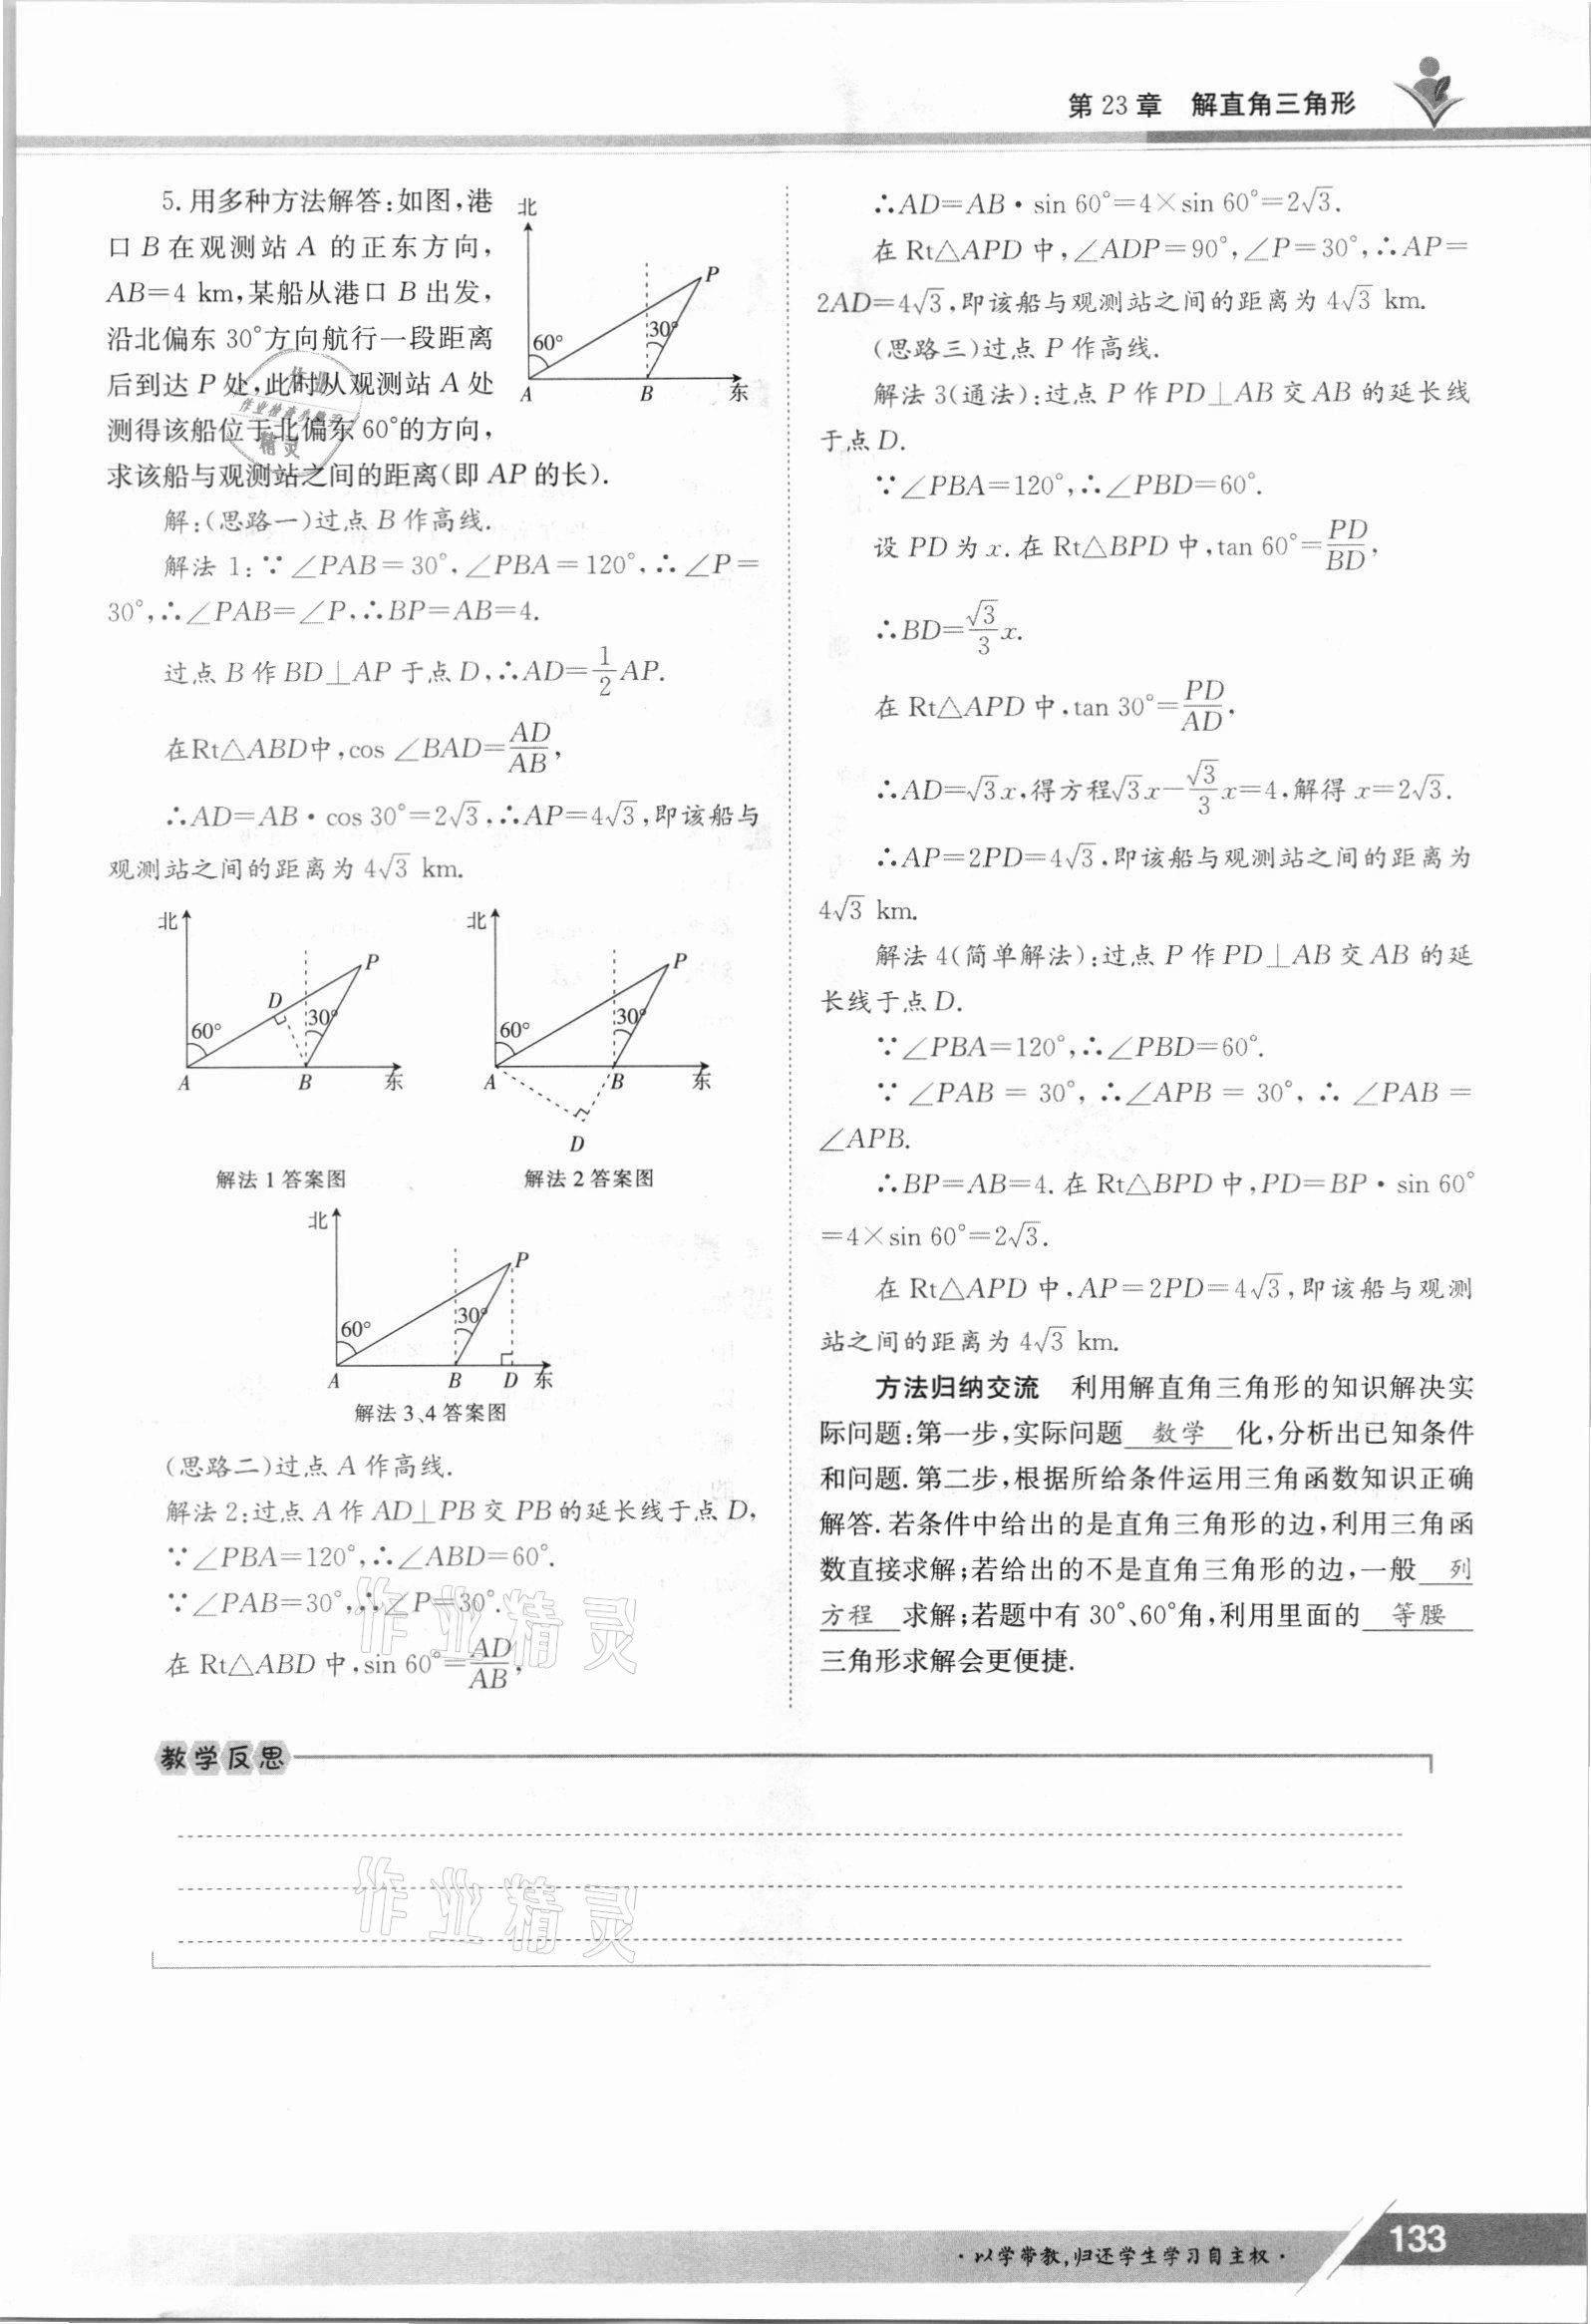 第 23 章 解直角三角形
5. 用多种方法解答:如图,港
口 B 在观测站 A 的正东方向,
AB=4 km,某船从港口 B 出发,
沿北偏东 30°方向航行一段距离
后到达 P 处,此时从观测站 A 处
测得该船位于北偏东 60°的方向,
求该船与观测站之间的距离(即 AP 的长).
北
P
60°
30°
A
B
东
解:(思路一)过点 B 作高线.
解法 1:∵∠PAB=30°,∠PBA=120°,∴∠P=
30°,∴∠PAB=∠P,∴BP=AB=4.
过点 B 作 BD⊥AP 于点 D,∴AD=1/2 AP.
在Rt△ABD中,cos ∠BAD=AD/AB,
∴AD=AB·cos 30°=2√3,∴AP=4√3,即该船与
观测站之间的距离为 4√3 km.
北
P
D
60°
30°
A
B
东
解法 1 答案图
北
P
60°
30°
A
B
东
D
解法 2 答案图
北
P
60°
30°
A
B
D
东
解法 3、4 答案图
(思路二)过点 A 作高线.
解法 2:过点 A 作 AD⊥PB 交 PB 的延长线于点 D,
∵∠PBA=120°,∴∠ABD=60°.
∵∠PAB=30°,∴∠P=30°.
在 Rt△ABD 中,sin 60°=AD/AB,
∴AD=AB·sin 60°=4×sin 60°=2√3.
在 Rt△APD 中,∠ADP=90°,∠P=30°,∴AP=
2AD=4√3,即该船与观测站之间的距离为 4√3 km.
(思路三)过点 P 作高线.
解法 3(通法):过点 P 作 PD⊥AB 交 AB 的延长线
于点 D.
∵∠PBA=120°,∴∠PBD=60°.
设 PD 为 x. 在 Rt△BPD 中,tan 60°=PD/BD,
∴BD=√3/3 x.
在 Rt△APD 中,tan 30°=PD/AD,
∴AD=√3x,得方程√3x-√3/3 x=4,解得 x=2√3.
∴AP=2PD=4√3,即该船与观测站之间的距离为
4√3 km.
解法 4(简单解法):过点 P 作 PD⊥AB 交 AB 的延
长线于点 D.
∵∠PBA=120°,∴∠PBD=60°.
∵∠PAB=30°,∴∠APB=30°,∴∠PAB=
∠APB.
∴BP=AB=4. 在 Rt△BPD 中,PD=BP·sin 60°
=4×sin 60°=2√3.
在 Rt△APD 中,AP=2PD=4√3,即该船与观测
站之间的距离为 4√3 km.
方法归纳交流 利用解直角三角形的知识解决实
际问题:第一步,实际问题 数学 化,分析出已知条件
和问题. 第二步,根据所给条件运用三角函数知识正确
解答. 若条件中给出的是直角三角形的边,利用三角函
数直接求解;若给出的不是直角三角形的边,一般 列
方程 求解;若题中有 30°、60°角,利用里面的 等腰
三角形求解会更便捷.
作业精灵
教学反思
作业精灵
·以学带教,归还学生学习自主权·
133